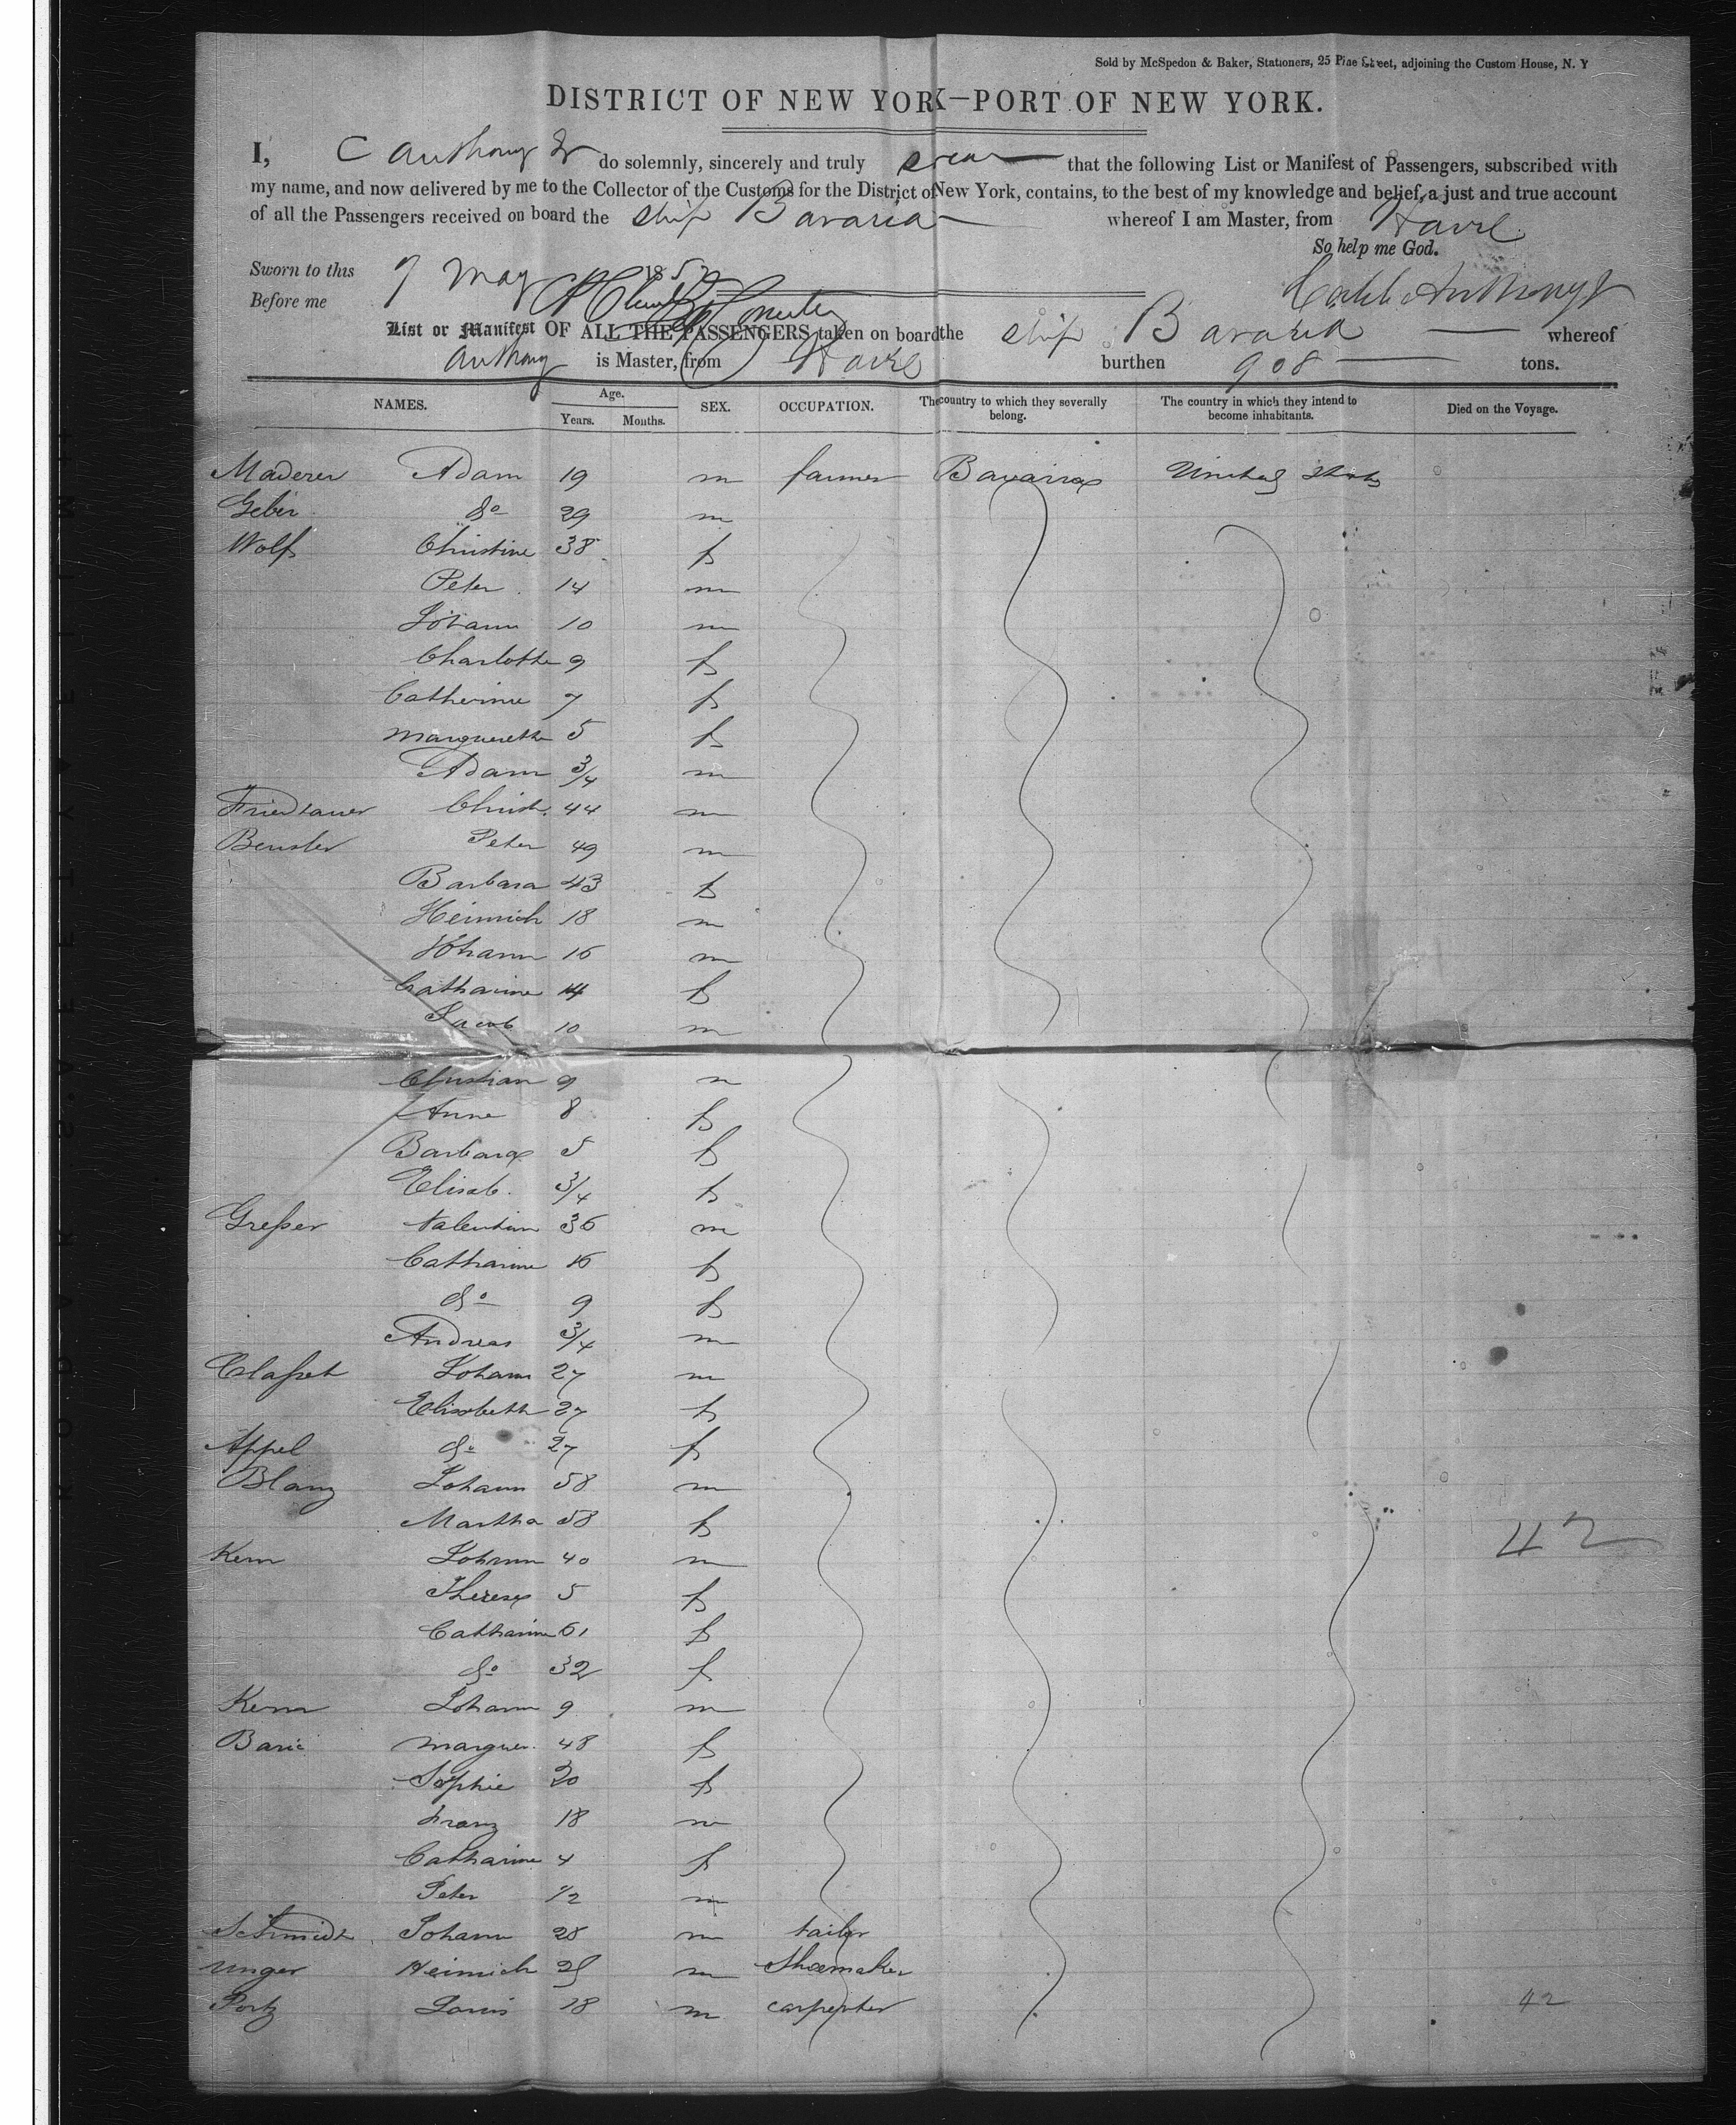 Sold by McSpedon & Baker, Stationers, 25 Pine Street, adjoining the Custom House, N. Y
DISTRICT OF NEW YORK—PORT OF NEW YORK.
I, C Anthony Jr do solemnly, sincerely and truly swear that the following List or Manifest of Passengers, subscribed with
my name, and now delivered by me to the Collector of the Customs for the District of New York, contains, to the best of my knowledge and belief, a just and true account
of all the Passengers received on board the ship Bavaria whereof I am Master, from Havre
So help me God.
Sworn to this 7 May 185
Before me Caleb Anthony Jr
List or Manifest OF ALL THE PASSENGERS taken on board the ship Bavaria whereof
Anthony is Master, from Havre burthen 908 tons.
NAMES. Age. Years. Months. SEX. OCCUPATION. The country to which they severally belong. The country in which they intend to become inhabitants. Died on the Voyage.
Maderer Adam 19 m farmer Bavaria United States
Geber do 29 m
Wolf Christine 38 f
Peter 14 m
Johann 10 m
Charlotte 9 f
Catherine 7 f
Marguerethe 5 f
Adam 3/4 m
Christ. 44 m
Beusler Peter 49 m
Barbara 43 f
Heinrich 18 m
Johann 16 m
Catharine 14 f
Jacob 10 m
Christian 9 m
Anne 8 f
Barbara 5 f
Elisab. 3/4 f
Greßer Valentin 36 m
Catharine f
do 9 f
Andreas 3/4 m
Claßet Johann 27 m
Elisabeth 27 f
Appel do 27 f
Blanz Johann 58 m
Martha 58 f
42
Kern Johann 40 m
Therese 5 f
Catharine 61 f
do 32 f
Kern Johann 9 m
Barie Marguer. 48 f
Sophie 20 f
Franz 18 m
Catharine 4 f
Peter 1/2 m
Schmidt Johann 28 m tailor
Unger Heinrich 25 m Shoemaker
Portz Louis 18 m carpenter
42